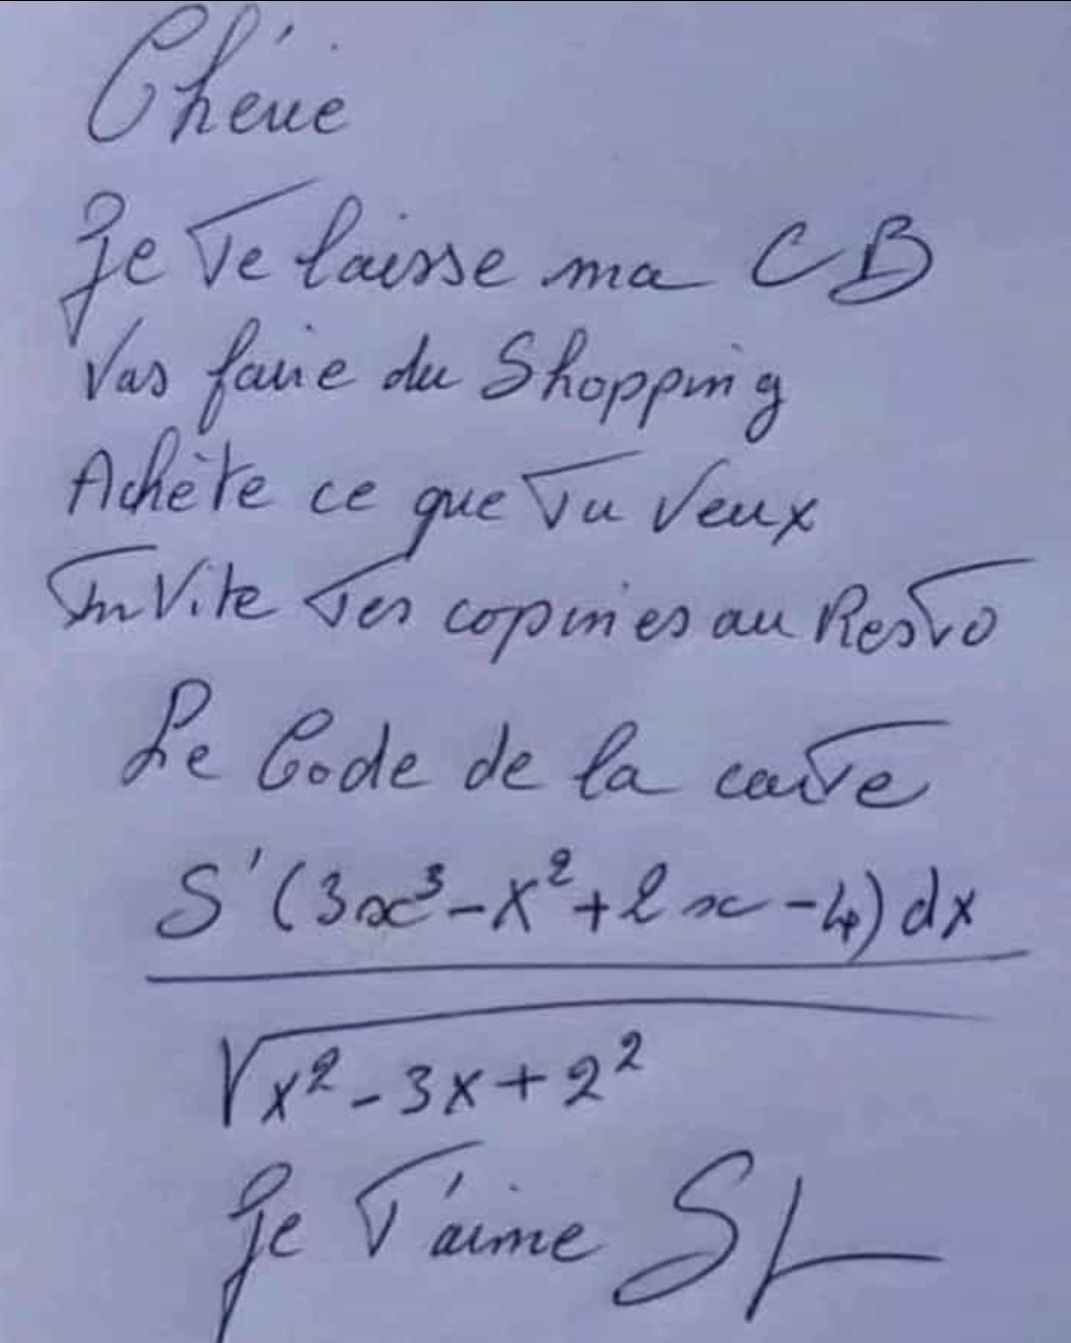 Chérie
Je Te laisse ma CB
Vas faire du Shopping
Achète ce que Tu Veux
InVite Tes copines au ResTo
Le Code de la carTe
S'(3x³-x²+2x-4)dx
√x²-3x+2²
Je T'aime